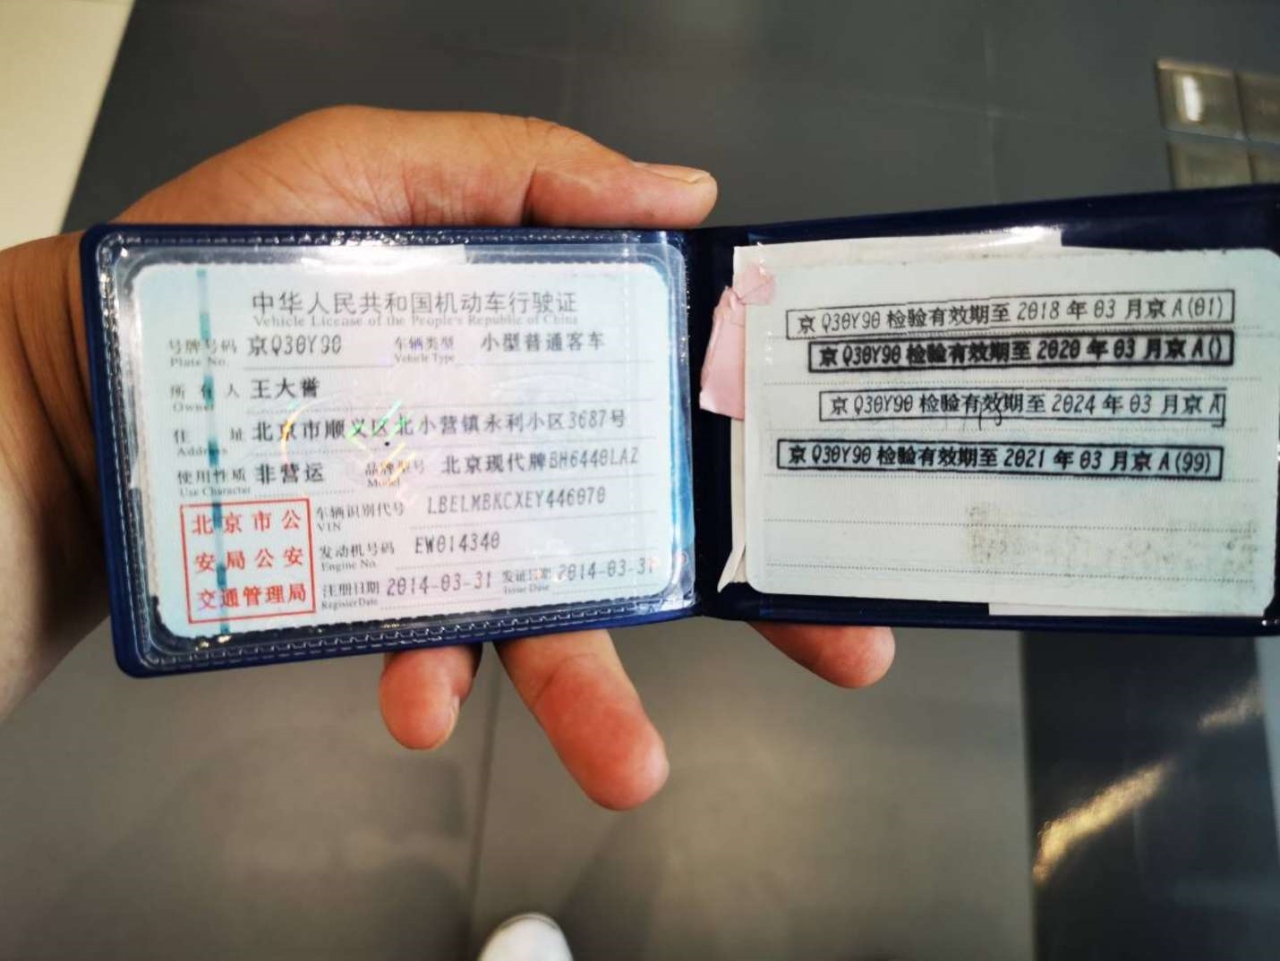 中华人民共和国机动车行驶证
Vehicle License of the People's Republic of China
号牌号码 京Q30Y90 车辆类型 小型普通客车
Plate No. Vehicle Type
所有人 王大誉
Owner
住址 北京市顺义区北小营镇永利小区3687号
Address
使用性质 非营运 品牌型号 北京现代牌BH6440LAZ
Use Character Model
北京市公
安局公安
交通管理局
车辆识别代号 LBELMBKCXEY446070
VIN
发动机号码 EW014340
Engine No.
注册日期 2014-03-31 发证日期 2014-03-31
Register Date Issue Date
京Q30Y90 检验有效期至 2018 年 03 月京A(01)
京Q30Y90 检验有效期至 2020 年 03 月京A()
京Q30Y90 检验有效期至 2024 年 03 月京A
京Q30Y90 检验有效期至 2021 年 03 月京A(99)